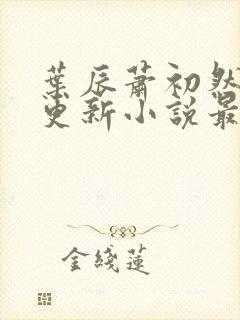 葉辰蕭初然
更新小說最
金綫蓮